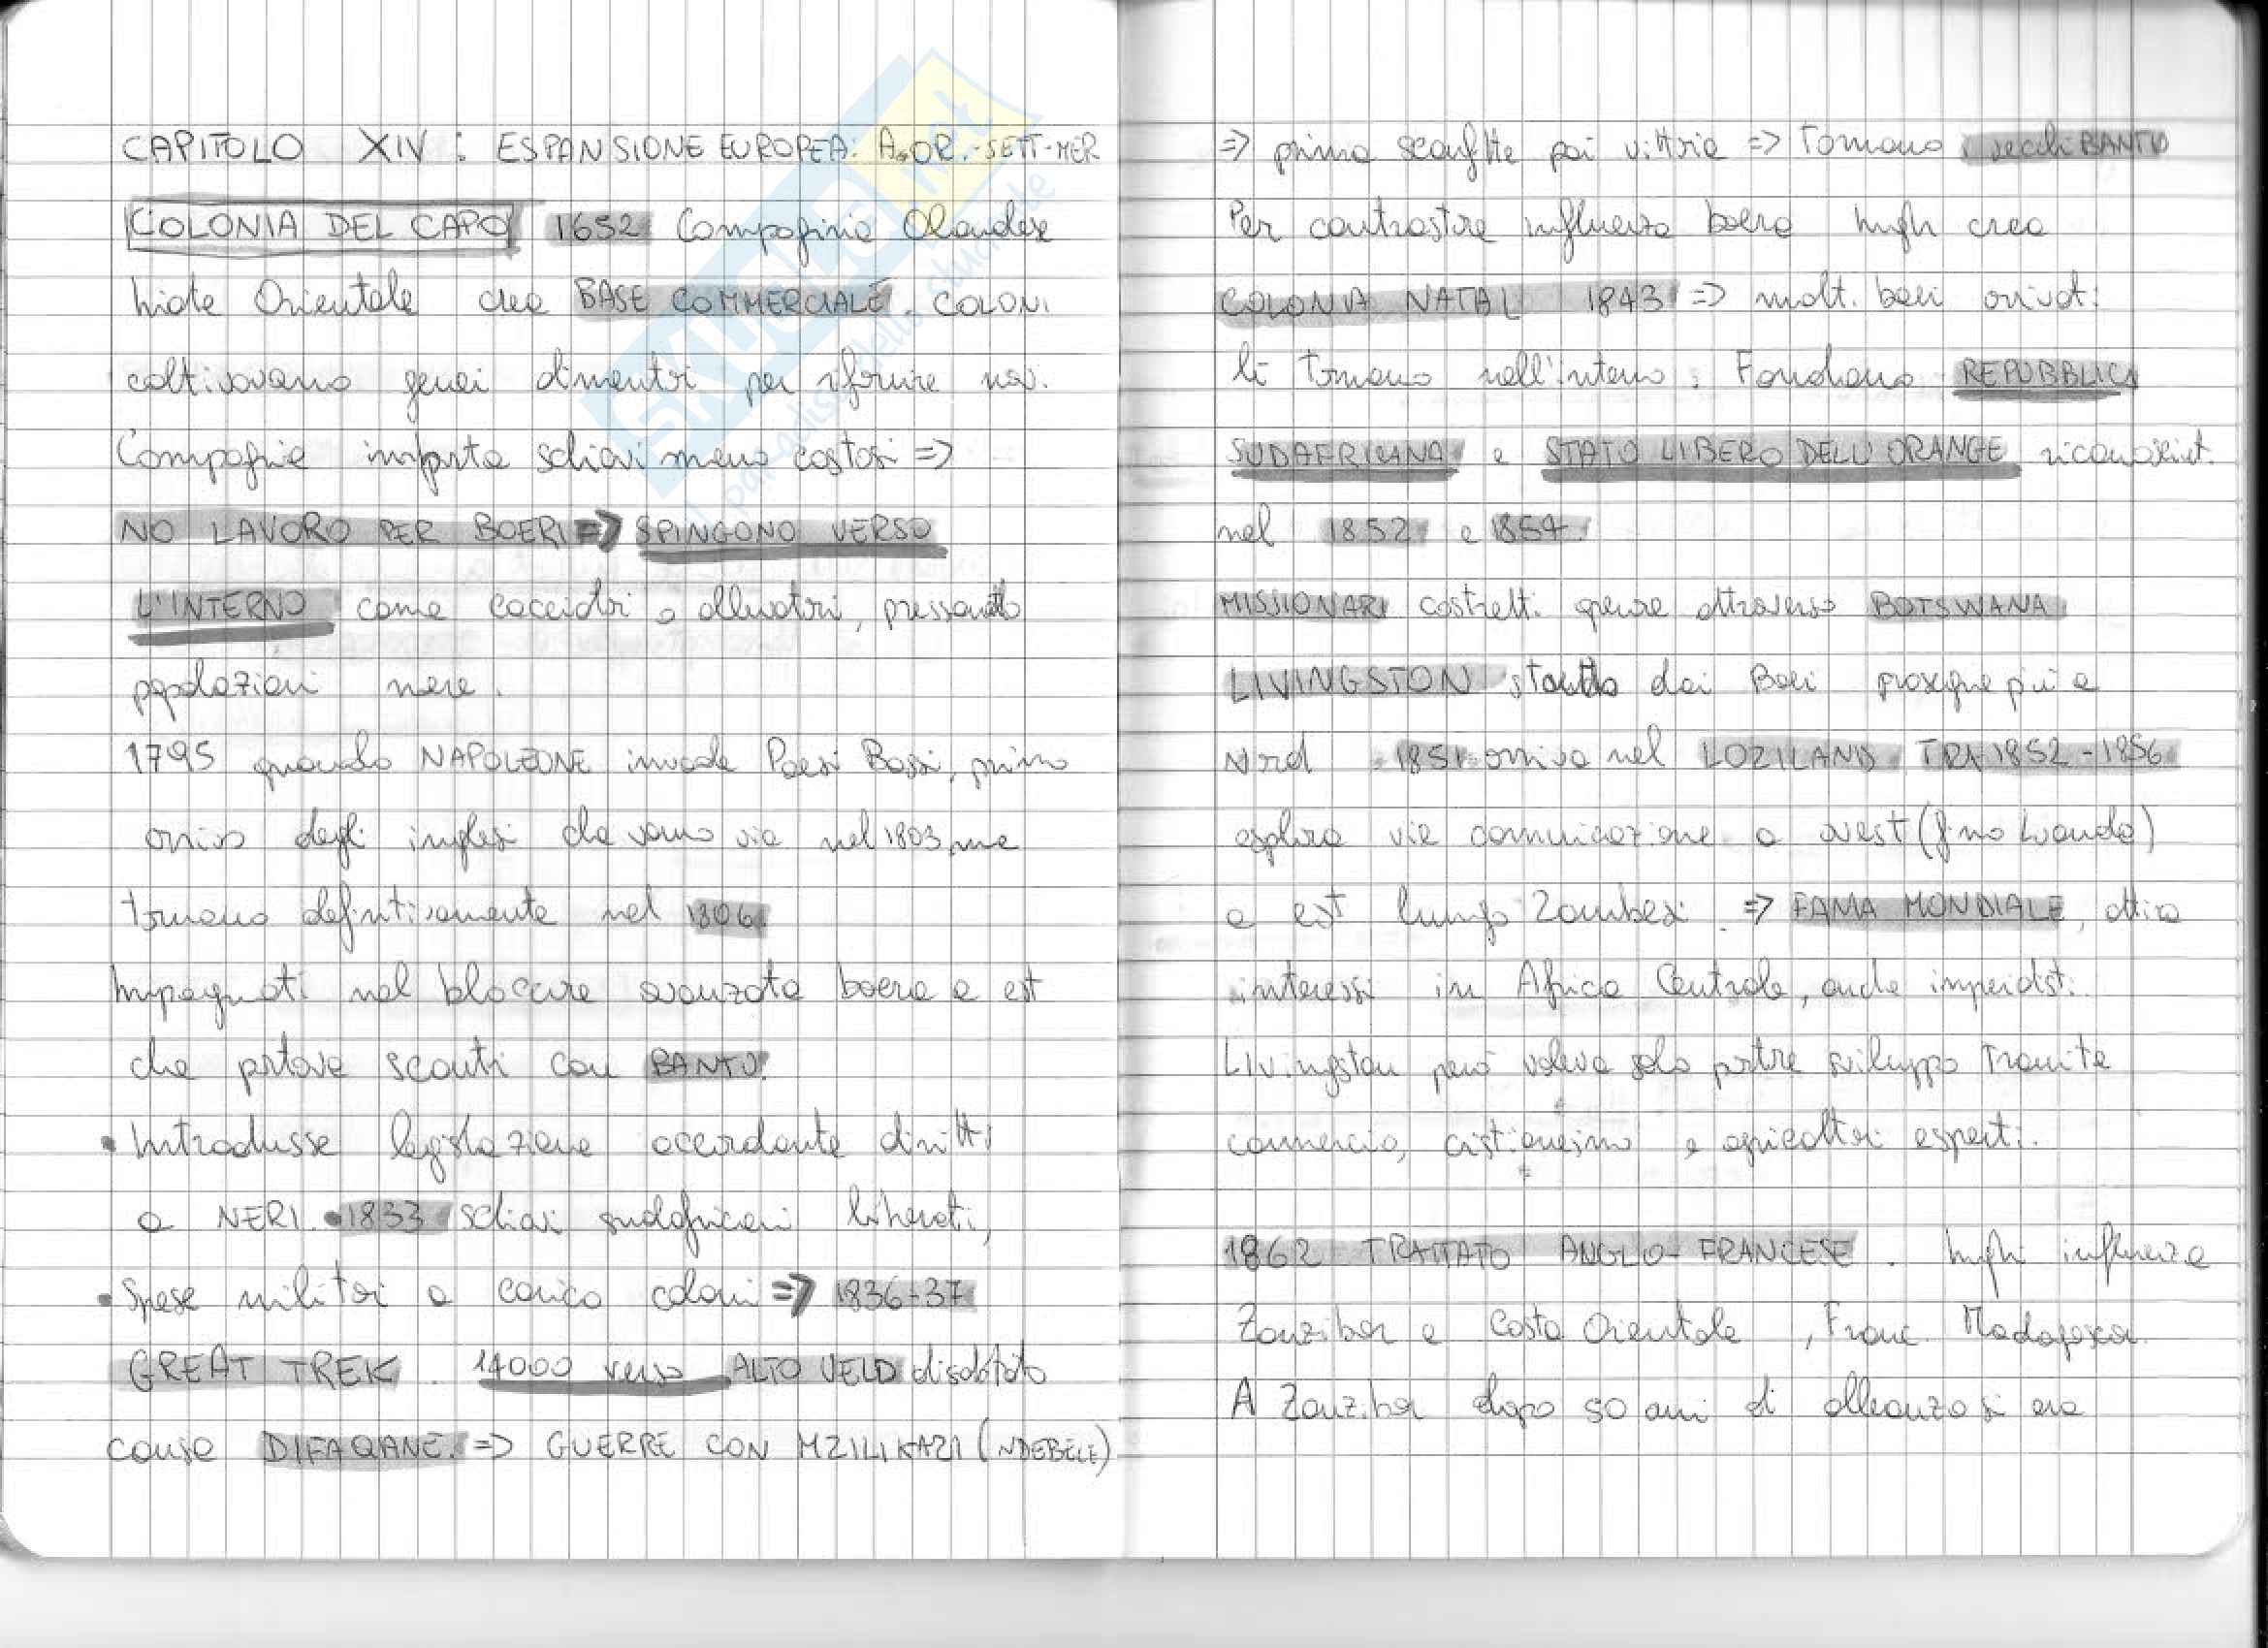 CAPITOLO XIV: ESPANSIONE EUROPEA. A. OR.-SETT-MER
COLONIA DEL CAPO 1652 Compagnia Olandese
Indie Orientale crea BASE COMMERCIALE. COLONI
coltivavano generi alimentari per rifornire navi.
Compagnia importa schiavi meno costosi =>
NO LAVORO PER BOERI => SPINGONO VERSO
L'INTERNO come cacciatori o allevatori, pressando
popolazioni nere.
1795 quando NAPOLEONE invade Paesi Bassi, primo
arrivo degli inglesi che vanno via nel 1803, ma
tornano definitivamente nel 1806.
Impegnati nel bloccare avanzata boera a est
che portava scontri con BANTU.
• Introdusse legislazione accordante diritti
a NERI. • 1833 schiavi sudafricani liberati,
• Spese militari a carico coloni => 1836-37
GREAT TREK. 14000 verso ALTO VELD disabitato
causa DIFAQANE. => GUERRE CON MZILIKAZI (NDEBELE)
=> prima sconfitte poi vittoria => Tornano i vecchi BANTU
Per contrastare influenza boera Ingh crea
COLONIA NATAL 1843 => molti boeri arrivati
lì tornano nell'interno. Fondano REPUBBLICA
SUDAFRICANA e STATO LIBERO DELL'ORANGE riconosciut.
nel 1852 e 1854.
MISSIONARI costretti operare attraverso BOTSWANA
LIVINGSTON dai Boeri prosegue più a
Nord 1851 arriva nel LOZILAND TRA 1852-1856
esplora vie comunicazione a ovest (fino Luanda)
a est lungo Zambesi. => FAMA MONDIALE, attira
interessi in Africa Centrale, anche imperialisti.
Livingston però voleva solo portare sviluppo tramite
commercio, cristianesimo e agricoltori esperti.
1862 TRATTATO ANGLO-FRANCESE. Ingh influenza
Zanzibar e Costa Orientale, Franc. Madagascar.
A Zanzibar dopo 50 anni di alleanza si era
SKUOLA.net
il paradiso dello studente